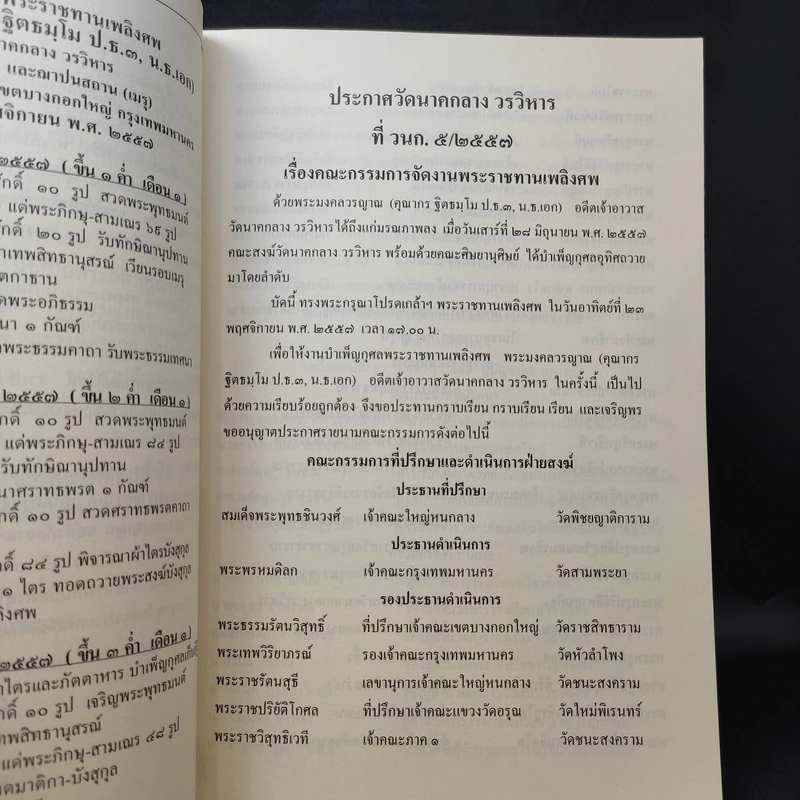 พระราชทานเพลิงศพ
ฐิตธมฺโม ป.ธ.๓, น.ธ.เอก)
นาคกลาง วรวิหาร
และฌาปนสถาน (เมรุ)
เขตบางกอกใหญ่ กรุงเทพมหานคร
ศจิกายน พ.ศ. ๒๕๕๗
๒๕๕๗ ( ขึ้น ๑ ค่ำ เดือน ๑)
ศักดิ์ ๑๐ รูป สวดพระพุทธมนต์
แด่พระภิกษุ-สามเณร ๖๙ รูป
ศักดิ์ ๒๐ รูป รับทักษิณานุปทาน
าเทพสิทธานุสรณ์ เวียนรอบเมรุ
ตกาธาน
ดพระอภิธรรม
นา ๑ กัณฑ์
ดพระธรรมคาถา รับพระธรรมเทศนา
๒๕๕๗ ( ขึ้น ๒ ค่ำ เดือน ๑)
ักดิ์ ๑๐ รูป สวดพระพุทธมนต์
แด่พระภิกษุ-สามเณร ๘๔ รูป
รับทักษิณานุปทาน
นาศราทธพรต ๑ กัณฑ์
ักดิ์ ๑๐ รูป สวดศราทธพรตคาถา
ักดิ์ ๘๔ รูป พิจารณาผ้าไตรบังสุกุล
๑ ไตร ทอดถวายพระสงฆ์บังสุกุล
ลิงศพ
๒๕๕๗ ( ขึ้น ๓ ค่ำ เดือน ๑)
าไตรและภัตตาหาร บำเพ็ญกุศลเก็บอั
ักดิ์ ๑๐ รูป เจริญพระพุทธมนต์
ทพสิทธานุสรณ์
แด่พระภิกษุ-สามเณร ๔๘ รูป
ดมาติกา-บังสุกุล
ประกาศวัดนาคกลาง วรวิหาร
ที่ วนก. ๕/๒๕๕๗
เรื่องคณะกรรมการจัดงานพระราชทานเพลิงศพ
ด้วยพระมงคลวรญาณ (คุณากร ฐิตธมฺโม ป.ธ.๓, น.ธ.เอก) อดีตเจ้าอาวาส
วัดนาคกลาง วรวิหารได้ถึงแก่มรณภาพลง เมื่อวันเสาร์ที่ ๒๘ มิถุนายน พ.ศ. ๒๕๕๗
คณะสงฆ์วัดนาคกลาง วรวิหาร พร้อมด้วยคณะศิษยานุศิษย์ ได้บำเพ็ญกุศลอุทิศถวาย
มาโดยลำดับ
บัดนี้ ทรงพระกรุณาโปรดเกล้าฯ พระราชทานเพลิงศพ ในวันอาทิตย์ที่ ๒๓
พฤศจิกายน พ.ศ. ๒๕๕๗ เวลา ๑๗.๐๐ น.
เพื่อให้งานบำเพ็ญกุศลพระราชทานเพลิงศพ พระมงคลวรญาณ (คุณากร
ฐิตธมฺโม ป.ธ.๓, น.ธ.เอก) อดีตเจ้าอาวาสวัดนาคกลาง วรวิหาร ในครั้งนี้ เป็นไป
ด้วยความเรียบร้อยถูกต้อง จึงขอประทานกราบเรียน กราบเรียน เรียน และเจริญพร
ขออนุญาตประกาศรายนามคณะกรรมการดังต่อไปนี้
คณะกรรมการที่ปรึกษาและดำเนินการฝ่ายสงฆ์
ประธานที่ปรึกษา
สมเด็จพระพุทธชินวงศ์ เจ้าคณะใหญ่หนกลาง วัดพิชยญาติการาม
ประธานดำเนินการ
พระพรหมดิลก เจ้าคณะกรุงเทพมหานคร วัดสามพระยา
รองประธานดำเนินการ
พระธรรมรัตนวิสุทธิ์ ที่ปรึกษาเจ้าคณะเขตบางกอกใหญ่ วัดราชสิทธาราม
พระเทพวิริยาภรณ์ รองเจ้าคณะกรุงเทพมหานคร วัดหัวลำโพง
พระราชรัตนสุธี เลขานุการเจ้าคณะใหญ่หนกลาง วัดชนะสงคราม
พระราชปริยัติโกศล ที่ปรึกษาเจ้าคณะแขวงวัดอรุณ วัดใหม่พิเรนทร์
พระราชวิสุทธิเวที เจ้าคณะภาค ๑ วัดชนะสงคราม